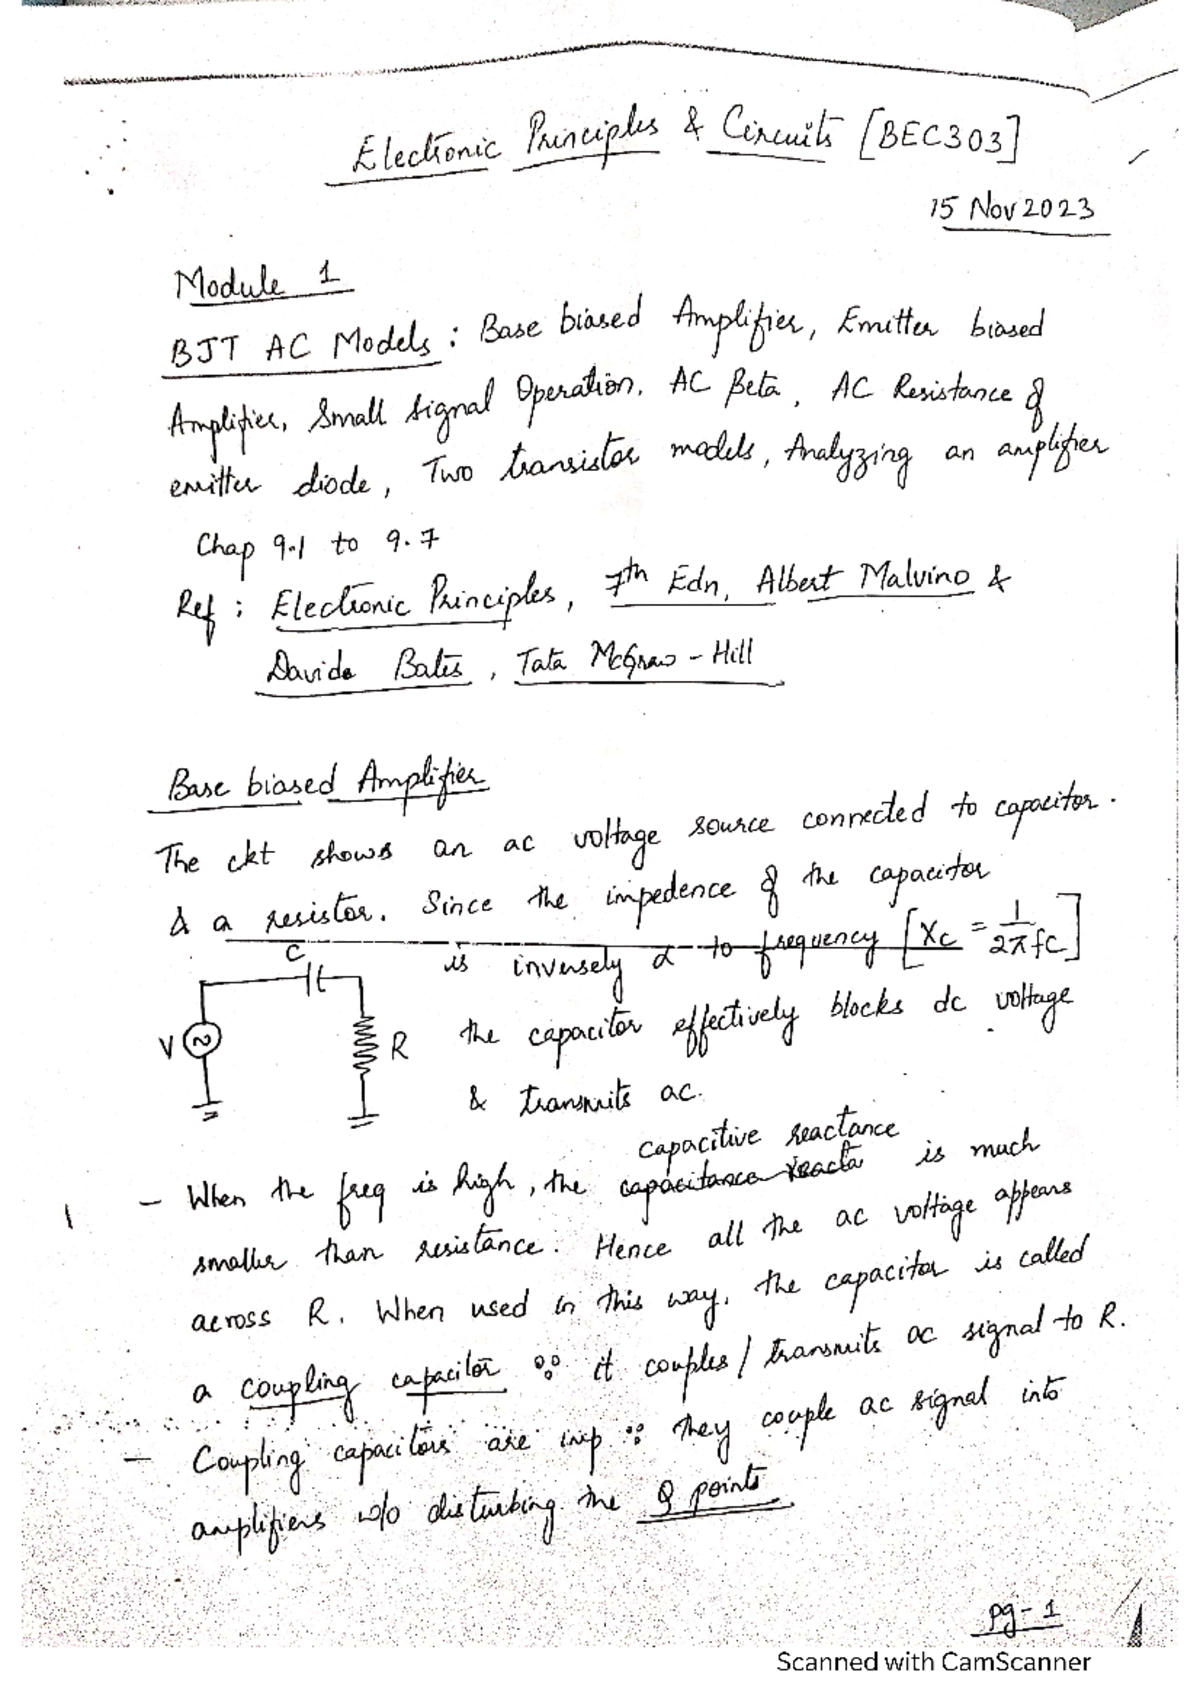 Electronic Principles & Circuits [BEC303]
15 Nov 2023
Module 1
BJT AC Models : Base biased Amplifier, Emitter biased
Amplifier, Small signal Operation, AC Beta, AC Resistance of
emitter diode, Two transistor models, Analyzing an amplifier
Chap 9.1 to 9.7
Ref : Electronic Principles, 7th Edn, Albert Malvino &
Davide Bates, Tata McGraw-Hill
Base biased Amplifier
The ckt shows an ac voltage source connected to capacitor.
& a resistor. Since the impedence of the capacitor
is inversely α to frequency [Xc = 1/2πfC]
C
V
R
the capacitor effectively blocks dc voltage
& transmits ac.
capacitive reactance
- When the freq is high, the capacitance reacta is much
smaller than resistance. Hence all the ac voltage appears
across R. When used in this way, the capacitor is called
a coupling capacitor ∵ it couples / transmits ac signal to R.
- Coupling capacitors are imp ∵ they couple ac signal into
amplifiers w/o disturbing the Q points
pg-1
Scanned with CamScanner